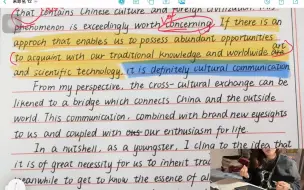 that contains Chinese culture and foreign civilization. This
phenomenon is exceedingly worth concerning. If there is an
approch that enables us to possess abundant opportunities
to acquaint with our traditional knowledge and worldwide art
and scientific technology, it is definitely cultural communication
From my perspective, the cross-cultural exchange can be
likened to a bridge which connects China and the outside
world. This communication, combined with brand new eyesights
to us and coupled with our enthusiasm for life.
In a nutshell, as a youngster, I cling to the idea that
it is of great necessity for us to inherit
meanwhile to get to know the essence of